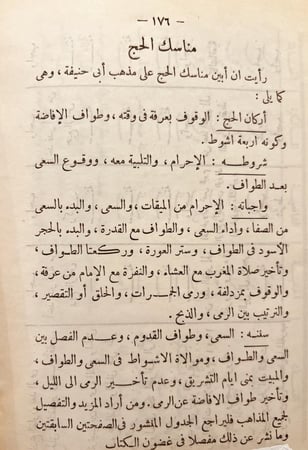 — ١٧٦ —
مناسك الحج
رأيت ان أبين مناسك الحج على مذهب أبى حنيفة ، وهى
كما يلى :
أركان الحج : الوقوف بعرفة فى وقته ، وطواف الإفاضة
وكونه أربعة أشوط .
شروطه : الإحرام ، والتلبية معه ، ووقوع السعى
بعد الطواف .
واجباته : الإحرام من الميقات ، والسعى ، والبدء بالسعى
من الصفا ، وأداء السعى ، والطواف مع القدرة ، والبدء بالحجر
الأسود فى الطواف ، وستر العورة ، وركعتا الطواف ،
وتأخير صلاة المغرب مع العشاء ، والنفرة مع الإمام من عرفة ،
والوقوف بمزدلفة ، ورمى الجمرات ، والحلق أو التقصير ،
والترتيب بين الرمى ، والذبح .
سننه : السعى ، وطواف القدوم ، وعدم الفصل بين
السعى والطواف ، وموالاة الاشواط فى السعى والطواف ،
والمبيت بمنى ايام التشريق ، وعدم تأخير الرمى الى الليل ،
وتأخير طواف الافاضة عن الرمى . ومن أراد المزيد والتفصيل
لجميع المذاهب فليراجع الجدول المنشور فى الصفحتين السابقتين
وما نشر عن ذلك مفصلا فى غضون الكتاب